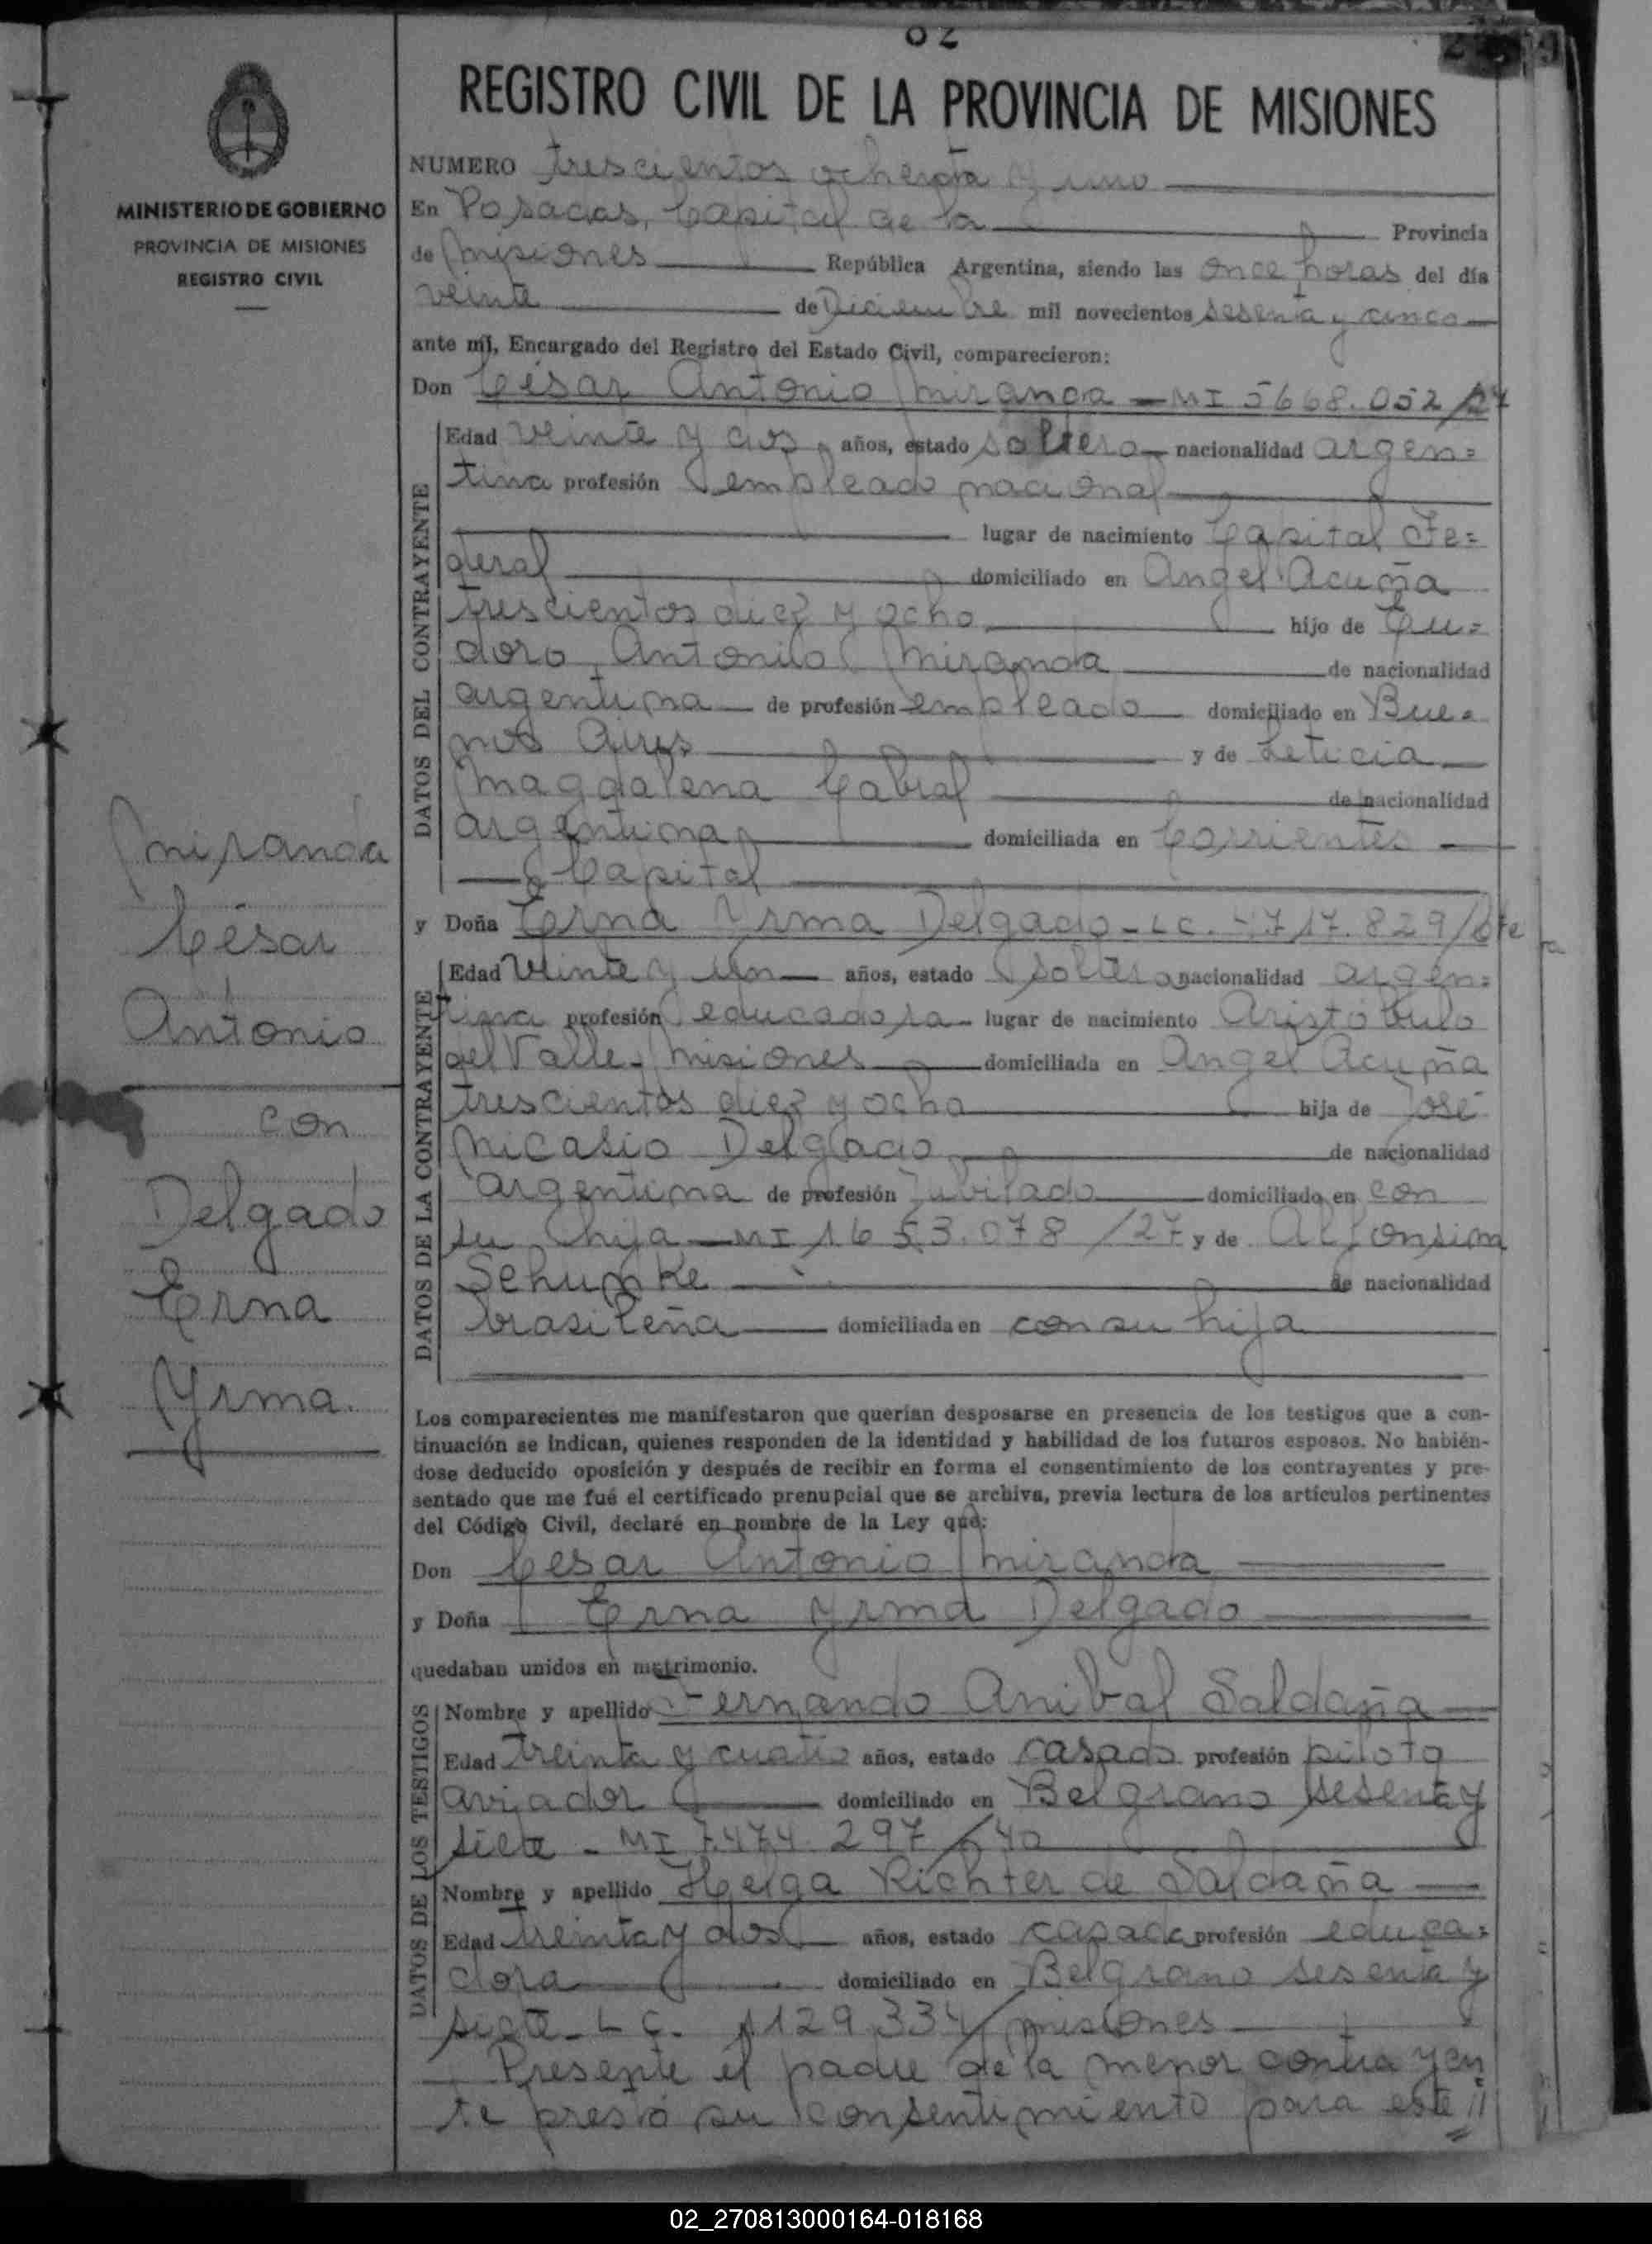 02
REGISTRO CIVIL DE LA PROVINCIA DE MISIONES
MINISTERIO DE GOBIERNO
PROVINCIA DE MISIONES
REGISTRO CIVIL
NUMERO trescientos ochenta y uno
En Posadas, Capital de la Provincia
de Misiones República Argentina, siendo las once horas del día
veinte de Diciembre mil novecientos sesenta y cinco
ante mí, Encargado del Registro del Estado Civil, comparecieron:
Don César Antonio Miranda - MI 5668.052/27
DATOS DEL CONTRAYENTE
Edad veinte y dos años, estado soltero nacionalidad argen=
tina profesión empleado nacional
lugar de nacimiento Capital Fe=
deral domiciliado en Angel Acuña
trescientos diez y ocho hijo de Eu=
doro Antonio Miranda de nacionalidad
argentina de profesión empleado domiciliado en Bue=
nos Aires y de Leticia
Magdalena Cabral de nacionalidad
argentina domiciliada en Corrientes
Capital
y Doña Erna Yrma Delgado - LC. 4.717.829
DATOS DE LA CONTRAYENTE
Edad veinte y un años, estado soltera nacionalidad argen=
tina profesión educadora lugar de nacimiento Aristóbulo
del Valle - Misiones domiciliada en Angel Acuña
trescientos diez y ocho hija de José
Nicasio Delgado de nacionalidad
argentina de profesión jubilado domiciliado en con
su hija - MI 1653.078/27 y de Alfonsina
Schumke de nacionalidad
brasileña domiciliada en con su hija
Miranda
César
Antonio
con
Delgado
Erna
Yrma.
Los comparecientes me manifestaron que querían desposarse en presencia de los testigos que a con-
tinuación se indican, quienes responden de la identidad y habilidad de los futuros esposos. No habién-
dose deducido oposición y después de recibir en forma el consentimiento de los contrayentes y pre-
sentado que me fué el certificado prenupcial que se archiva, previa lectura de los artículos pertinentes
del Código Civil, declaré en nombre de la Ley qué:
Don Cesar Antonio Miranda
y Doña Erna Yrma Delgado
quedaban unidos en matrimonio.
DATOS DE LOS TESTIGOS
Nombre y apellido Fernando Anibal Saldaña
Edad treinta y cuatro años, estado casado profesión piloto
aviador domiciliado en Belgrano sesenta y
siete - MI 7.474.297/40
Nombre y apellido Helga Richter de Saldaña
Edad treinta y dos años, estado casada profesión educa=
dora domiciliado en Belgrano sesenta y
siete - LC. 1129.334/Misiones
Presente el padre de la menor contrayen
te prestó su consentimiento para este //
02_270813000164-018168